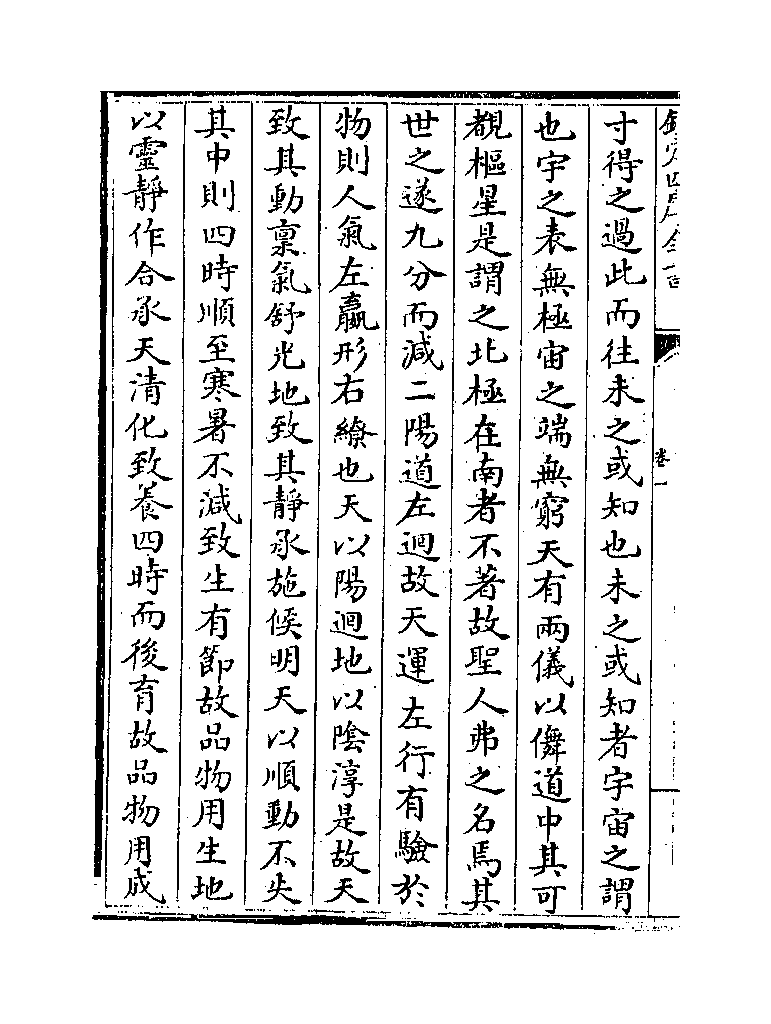 寸得之過此而往未之或知也未之或知者宇宙之謂
也宇之表無極宙之端無窮天有兩儀以儛道中其可
覩樞星是謂之北極在南者不著故聖人弗之名焉其
世之遂九分而減二陽道左迴故天運左行有驗於
物則人氣左羸形右繚也天以陽迴地以陰淳是故天
致其動禀氣舒光地致其靜承施候明天以順動不失
其中則四時順至寒暑不減致生有節故品物用生地
以靈靜作合承天清化致養四時而後育故品物用成
卷一